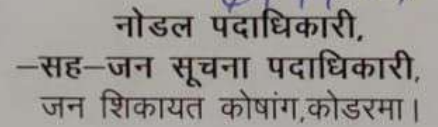 नोडल पदाधिकारी,
–सह–जन सूचना पदाधिकारी,
जन शिकायत कोषांग,कोडरमा।